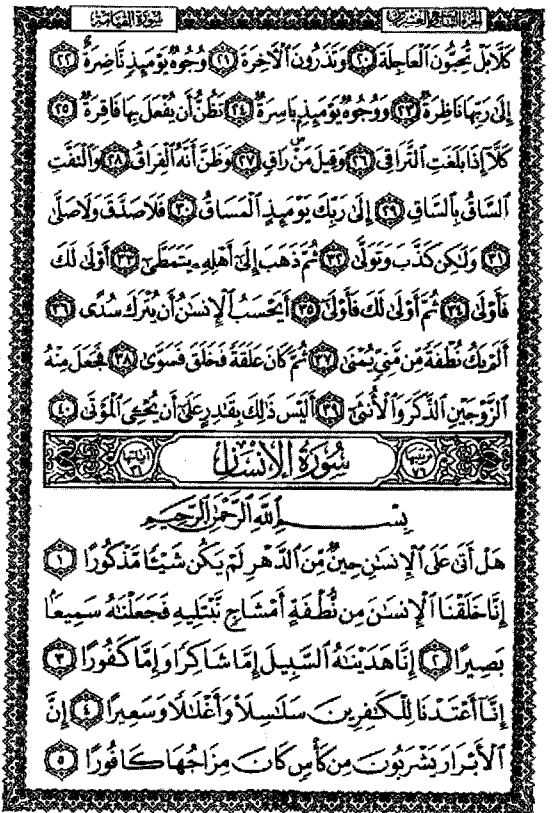 الجزء التاسع والعشرون سورة القيامة
كَلَّا بَلْ تُحِبُّونَ ٱلْعَاجِلَةَ ٢٠ وَتَذَرُونَ ٱلْآخِرَةَ ٢١ وُجُوهٌ يَوْمَئِذٍ نَّاضِرَةٌ ٢٢
إِلَىٰ رَبِّهَا نَاظِرَةٌ ٢٣ وَوُجُوهٌ يَوْمَئِذٍۭ بَاسِرَةٌ ٢٤ تَظُنُّ أَن يُفْعَلَ بِهَا فَاقِرَةٌ ٢٥
كَلَّآ إِذَا بَلَغَتِ ٱلتَّرَاقِىَ ٢٦ وَقِيلَ مَنْ رَاقٍ ٢٧ وَظَنَّ أَنَّهُ ٱلْفِرَاقُ ٢٨ وَٱلْتَفَّتِ
ٱلسَّاقُ بِٱلسَّاقِ ٢٩ إِلَىٰ رَبِّكَ يَوْمَئِذٍ ٱلْمَسَاقُ ٣٠ فَلَا صَدَّقَ وَلَا صَلَّىٰ
٣١ وَلَٰكِن كَذَّبَ وَتَوَلَّىٰ ٣٢ ثُمَّ ذَهَبَ إِلَىٰٓ أَهْلِهِۦ يَتَمَطَّىٰٓ ٣٣ أَوْلَىٰ لَكَ
فَأَوْلَىٰ ٣٤ ثُمَّ أَوْلَىٰ لَكَ فَأَوْلَىٰٓ ٣٥ أَيَحْسَبُ ٱلْإِنسَٰنُ أَن يُتْرَكَ سُدًى ٣٦
أَلَمْ يَكُ نُطْفَةً مِّن مَّنِىٍّ يُمْنَىٰ ٣٧ ثُمَّ كَانَ عَلَقَةً فَخَلَقَ فَسَوَّىٰ ٣٨ فَجَعَلَ مِنْهُ
ٱلزَّوْجَيْنِ ٱلذَّكَرَ وَٱلْأُنثَىٰٓ ٣٩ أَلَيْسَ ذَٰلِكَ بِقَٰدِرٍ عَلَىٰٓ أَن يُحْـِۧىَ ٱلْمَوْتَىٰ ٤٠
ترتيبها ٧٦ سُورَةُ الإِنسَانِ آياتها ٣١
بِسْمِ ٱللَّهِ ٱلرَّحْمَٰنِ ٱلرَّحِيمِ
هَلْ أَتَىٰ عَلَى ٱلْإِنسَٰنِ حِينٌ مِّنَ ٱلدَّهْرِ لَمْ يَكُن شَيْـًٔا مَّذْكُورًا ١
إِنَّا خَلَقْنَا ٱلْإِنسَٰنَ مِن نُّطْفَةٍ أَمْشَاجٍ نَّبْتَلِيهِ فَجَعَلْنَٰهُ سَمِيعًۢا
بَصِيرًا ٢ إِنَّا هَدَيْنَٰهُ ٱلسَّبِيلَ إِمَّا شَاكِرًا وَإِمَّا كَفُورًا ٣
إِنَّآ أَعْتَدْنَا لِلْكَٰفِرِينَ سَلَٰسِلَا۟ وَأَغْلَٰلًا وَسَعِيرًا ٤ إِنَّ
ٱلْأَبْرَارَ يَشْرَبُونَ مِن كَأْسٍ كَانَ مِزَاجُهَا كَافُورًا ٥